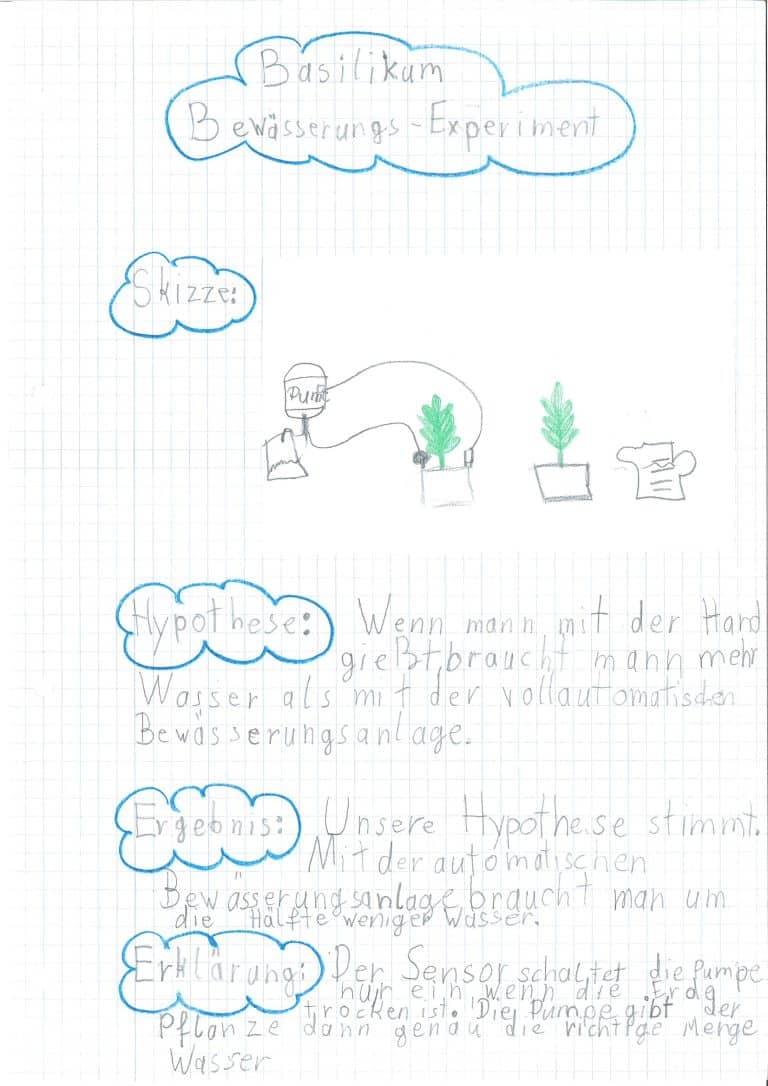 Basilikum
Bewässerungs-Experiment
Skizze:
Hypothese: Wenn mann mit der Hand
gießt, braucht mann mehr
Wasser als mit der vollautomatischen
Bewässerungsanlage.
Ergebnis: Unsere Hypothese stimmt.
Mit der automatischen
Bewässerungsanlage braucht man um
die Hälfte weniger Wasser.
Erklärung: Der Sensor schaltet die Pumpe
nur ein wenn die Erde
trocken ist. Die Pumpe gibt der
Pflanze dann genau die richtige Menge
Wasser